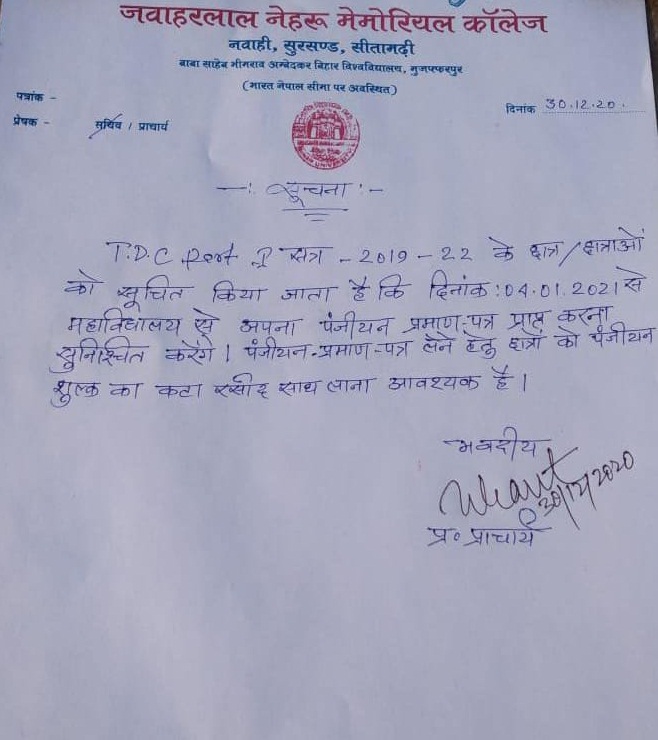 जवाहरलाल नेहरू मेमोरियल कॉलेज
नवाही, सुरसण्ड, सीतामढ़ी
बाबा साहेब भीमराव अम्बेदकर बिहार विश्वविद्यालय, मुजफ्फरपुर
(भारत नेपाल सीमा पर अवस्थित)
पत्रांक -
दिनांक 30.12.20.
प्रेषक - सचिव / प्राचार्य
-: सूचना :-
T.D.C Part I सत्र - 2019 - 22 के छात्र/छात्राओं
को सूचित किया जाता है कि दिनांक : 04.01.2021 से
महाविद्यालय से अपना पंजीयन प्रमाण-पत्र प्राप्त करना
सुनिश्चित करेंगे। पंजीयन-प्रमाण-पत्र लेने हेतु छात्रों को पंजीयन
शुल्क का कटा रसीद साथ लाना आवश्यक है।
भवदीय
30/12/2020
प्र० प्राचार्य